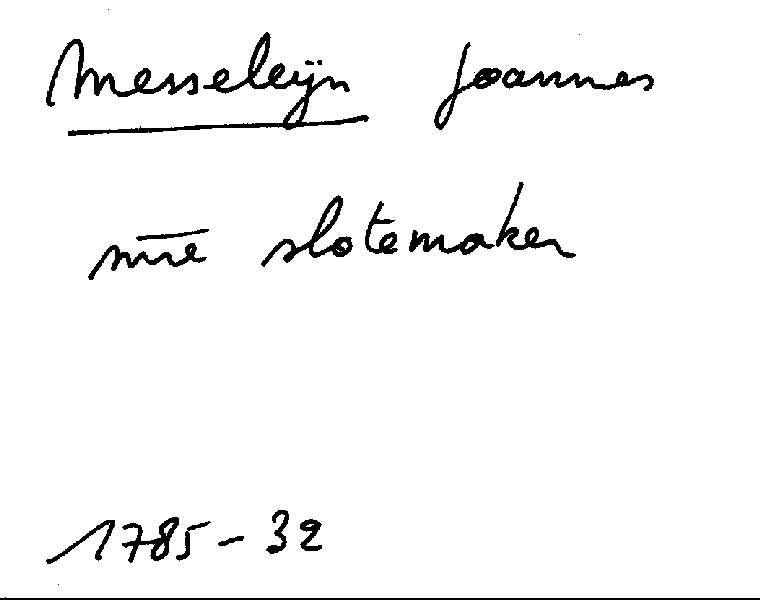 Messeleijn Joannes
mre slotemaker
1785-32